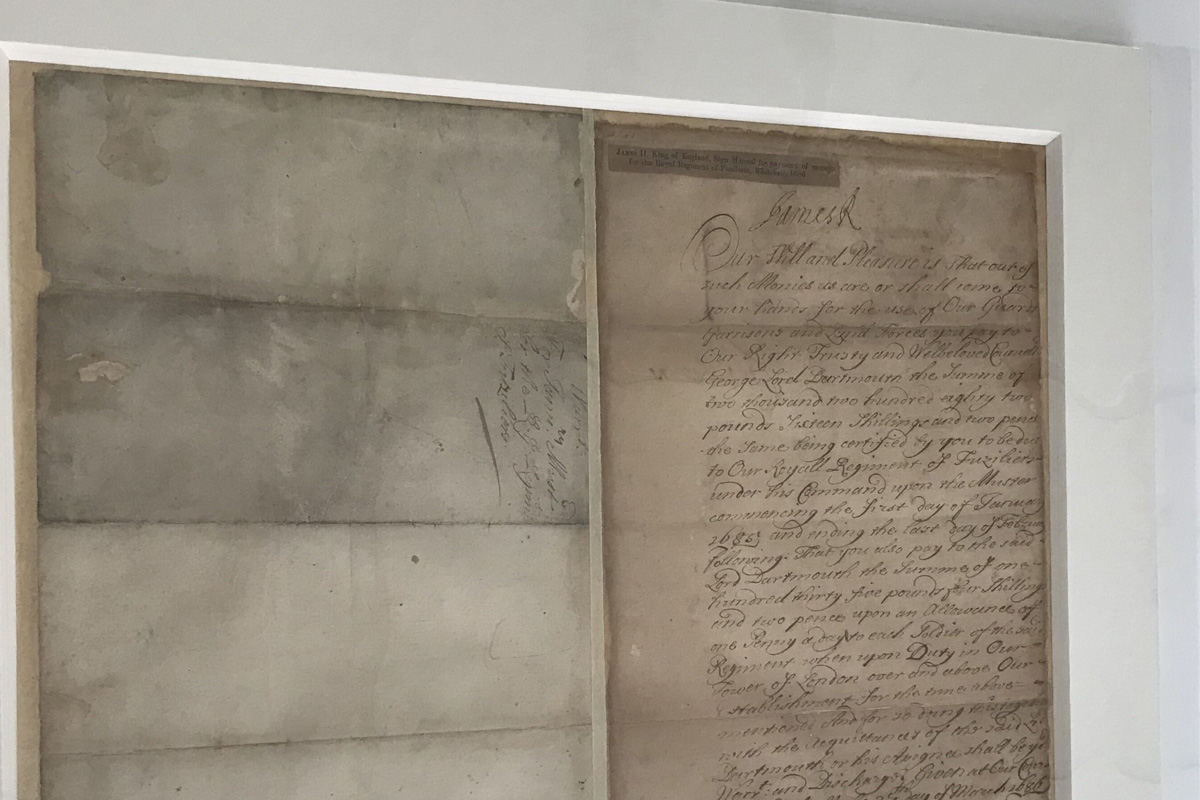 JAMES II, King of England, Sign Manual for payment of
for the Royal Regiment of Fusiliers, Whitehall, 1686
James R
Our Will and Pleasure is that out of
such Monies as are or shall come to
your hands for the use of Our Guards
Garrisons and Land Forces you pay to
Our Right Trusty and Welbeloved
George Lord Dartmouth the Summe of
two thousand two hundred eighty two
pounds sixteen shillings and two pence
the same being certified by you to be due
to Our Royall Regiment of Fuziliers
under his Command upon the Muster
commencing the first day of
1685 and ending the last day of
following: That you also pay to the said
Lord Dartmouth the Summe of one
hundred thirty five pounds four shillings
and two pence upon an Allowance of
one Penny a day to each Soldier of the said
Regiment when upon Duty in Our
Tower of London over and above Our
Establishment for the time above
mentioned And for so doing this
with the Acquittances of the said
Dartmouth or his Assignes shall be
Warrt. and Discharge. Given at Our
day of March
For
of Fuziliers